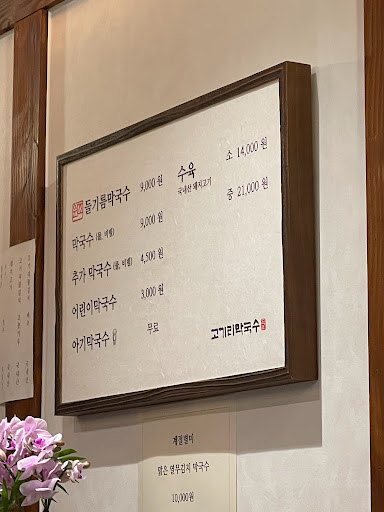 들기름막국수 9,000 원
막국수 (물, 비빔) 9,000 원
추가 막국수 (물, 비빔) 4,500 원
어린이막국수 3,000 원
아기막국수 무료
수육 소 14,000 원
국내산 돼지고기 중 21,000 원
고기리막국수
계절별미
맑은 열무김치 막국수
10,000원